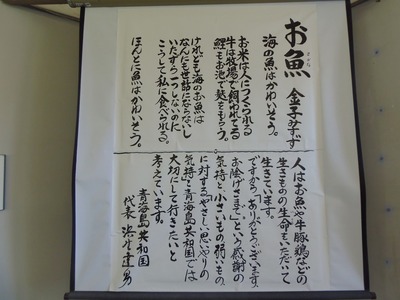 お魚
さかな
金子みすゞ
海の魚はかわいそう。
お米は人につくられる
牛は牧場で飼われてる
鯉もお池で麩をもらう。
けれども海のお魚は
なんにも世話にならないし
いたずら一つしないのに
こうして私に食べられる。
ほんとに魚はかわいそう。
人はお魚や牛豚鶏などの
生きものの生命もいただいて
生きています。
ですから「ありがとうございます。
お陰さまで」という感謝の
気持と、小さいもの弱いもの
に対するやさしい思いやりの
気持を青海島共和国では
大切にして行きたいと
考えています。
青海島共和国
代表